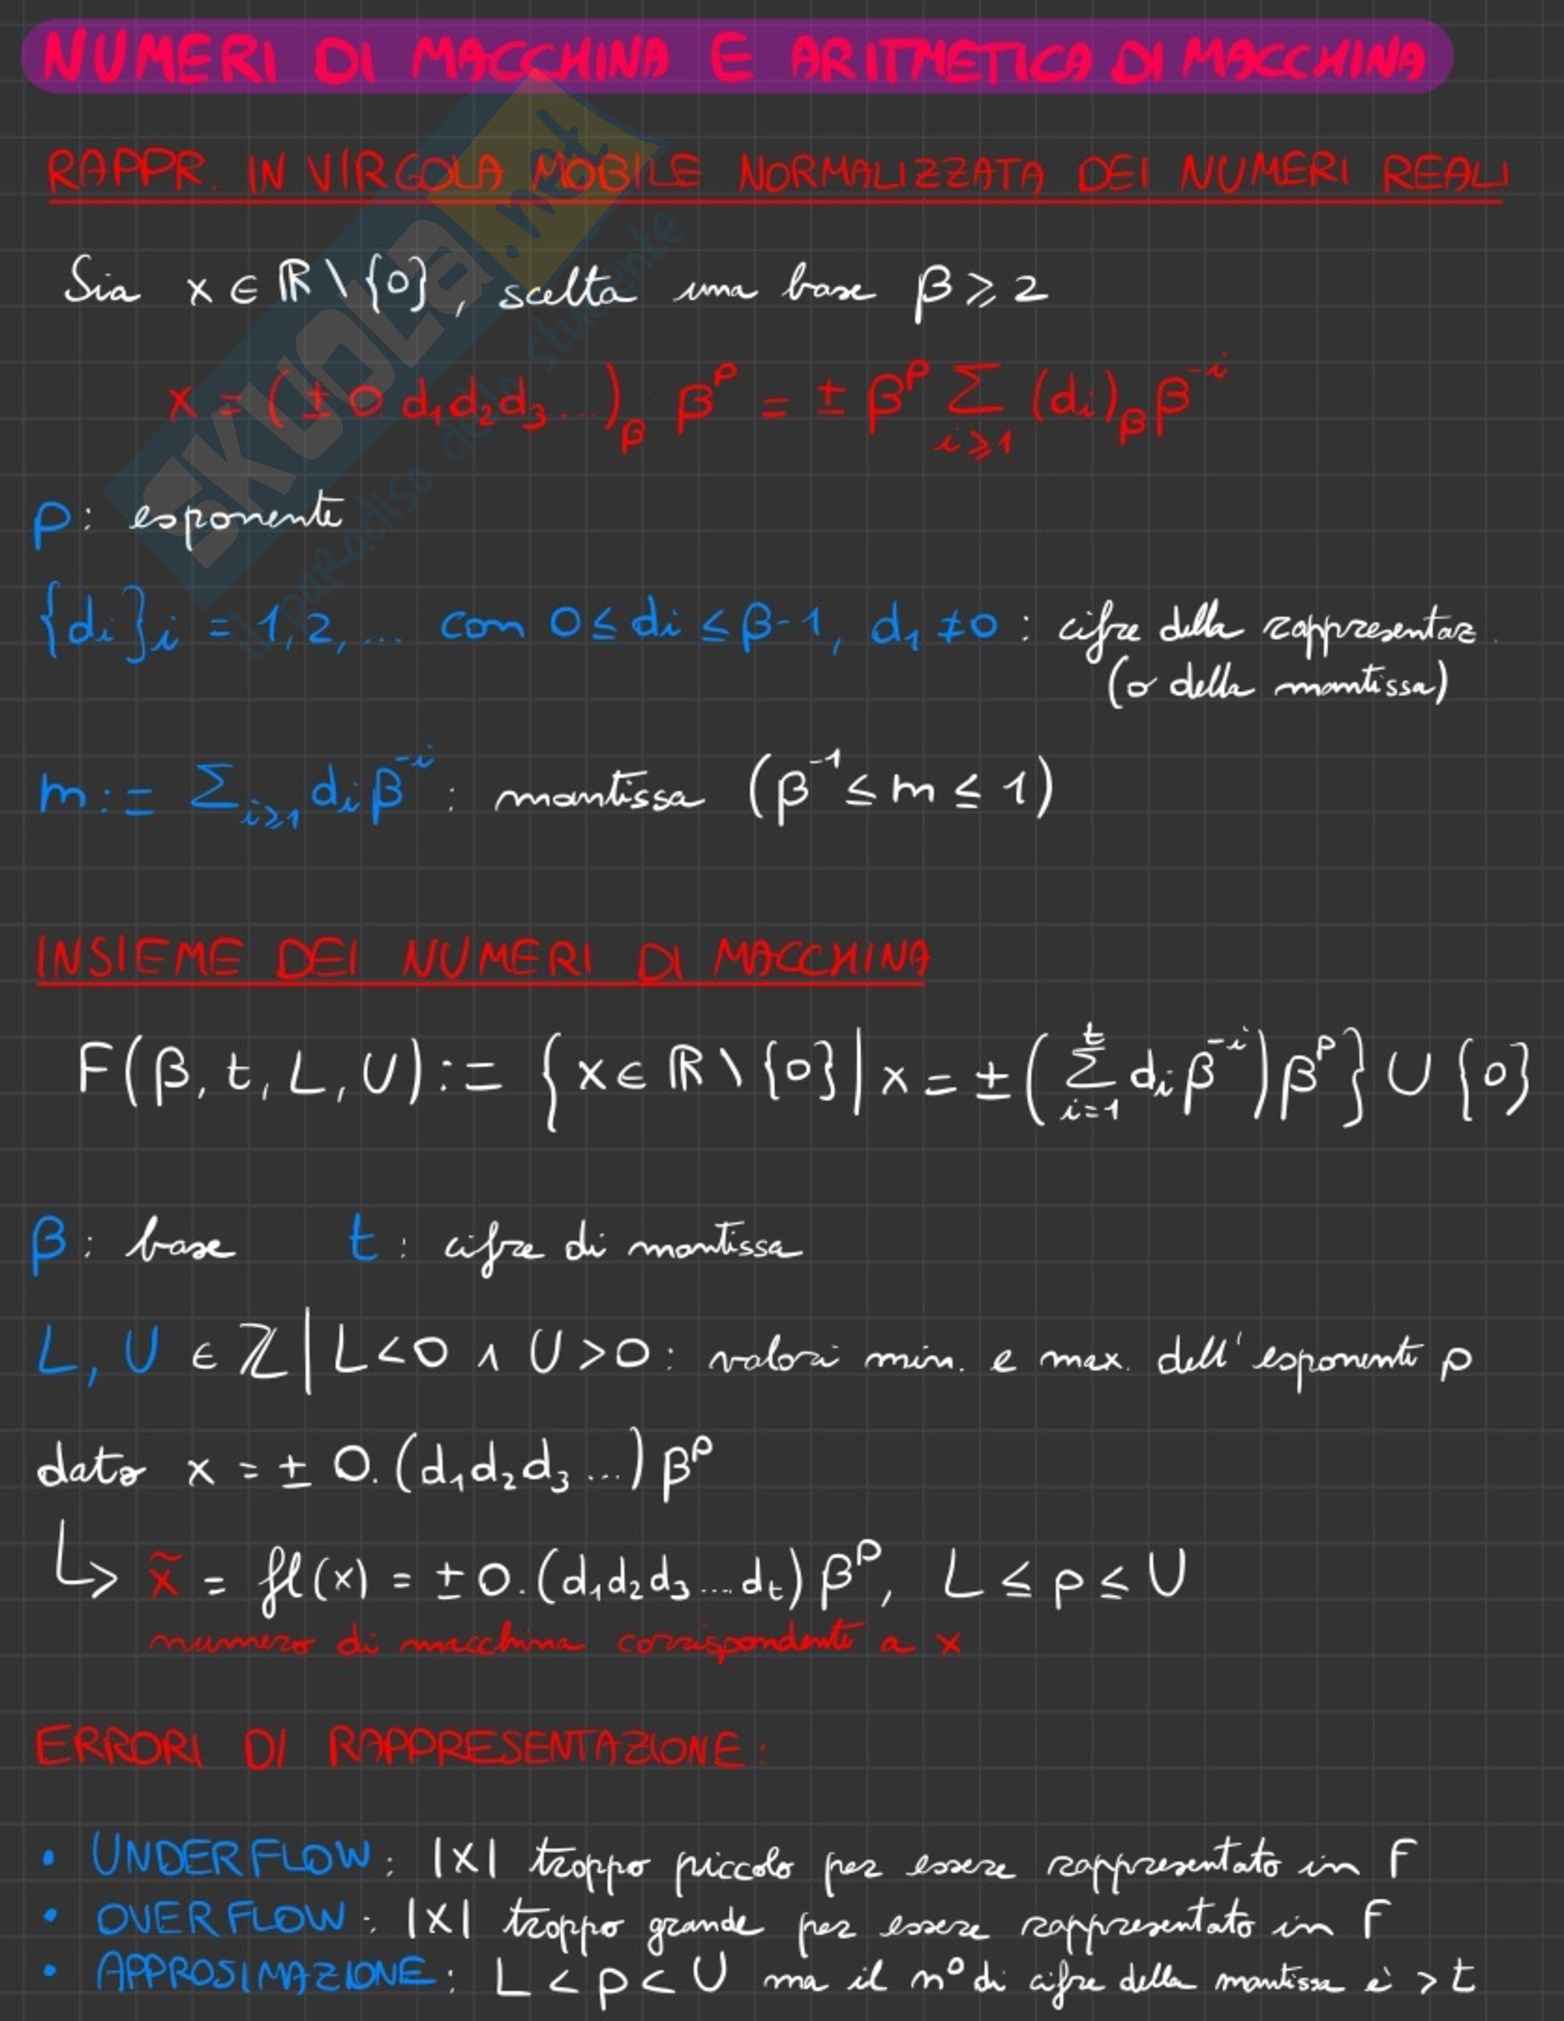 NUMERI DI MACCHINA E ARITMETICA DI MACCHINA
RAPPR. IN VIRGOLA MOBILE NORMALIZZATA DEI NUMERI REALI
Sia x ∈ ℝ \ {0}, scelta una base β ≥ 2
x = (± 0. d₁d₂d₃...)_β β^p = ± β^p Σ_{i≥1} (di)_β β^{-i}
p: esponente
{di}i = 1,2,... con 0 ≤ di ≤ β-1, d₁ ≠ 0 : cifre della rappresentaz.
(o della mantissa)
m := Σ_{i≥1} di β^{-i} : mantissa (β^{-1} ≤ m ≤ 1)
INSIEME DEI NUMERI DI MACCHINA
F(β, t, L, U) := {x ∈ ℝ \ {0} | x = ± (Σ_{i=1}^{t} di β^{-i}) β^p} ∪ {0}
β: base t: cifre di mantissa
L, U ∈ ℤ | L<0 ∧ U>0: valori min. e max. dell'esponente p
dato x = ± 0.(d₁d₂d₃...) β^p
↳ x̃ = fl(x) = ± 0.(d₁d₂d₃....dt) β^p, L ≤ p ≤ U
numero di macchina corrispondente a x
ERRORI DI RAPPRESENTAZIONE:
• UNDERFLOW: |X| troppo piccolo per essere rappresentato in F
• OVERFLOW: |X| troppo grande per essere rappresentato in F
• APPROSIMAZIONE: L < p < U ma il n° di cifre della mantissa è > t
SKUOLA.net
il paradiso dello studente